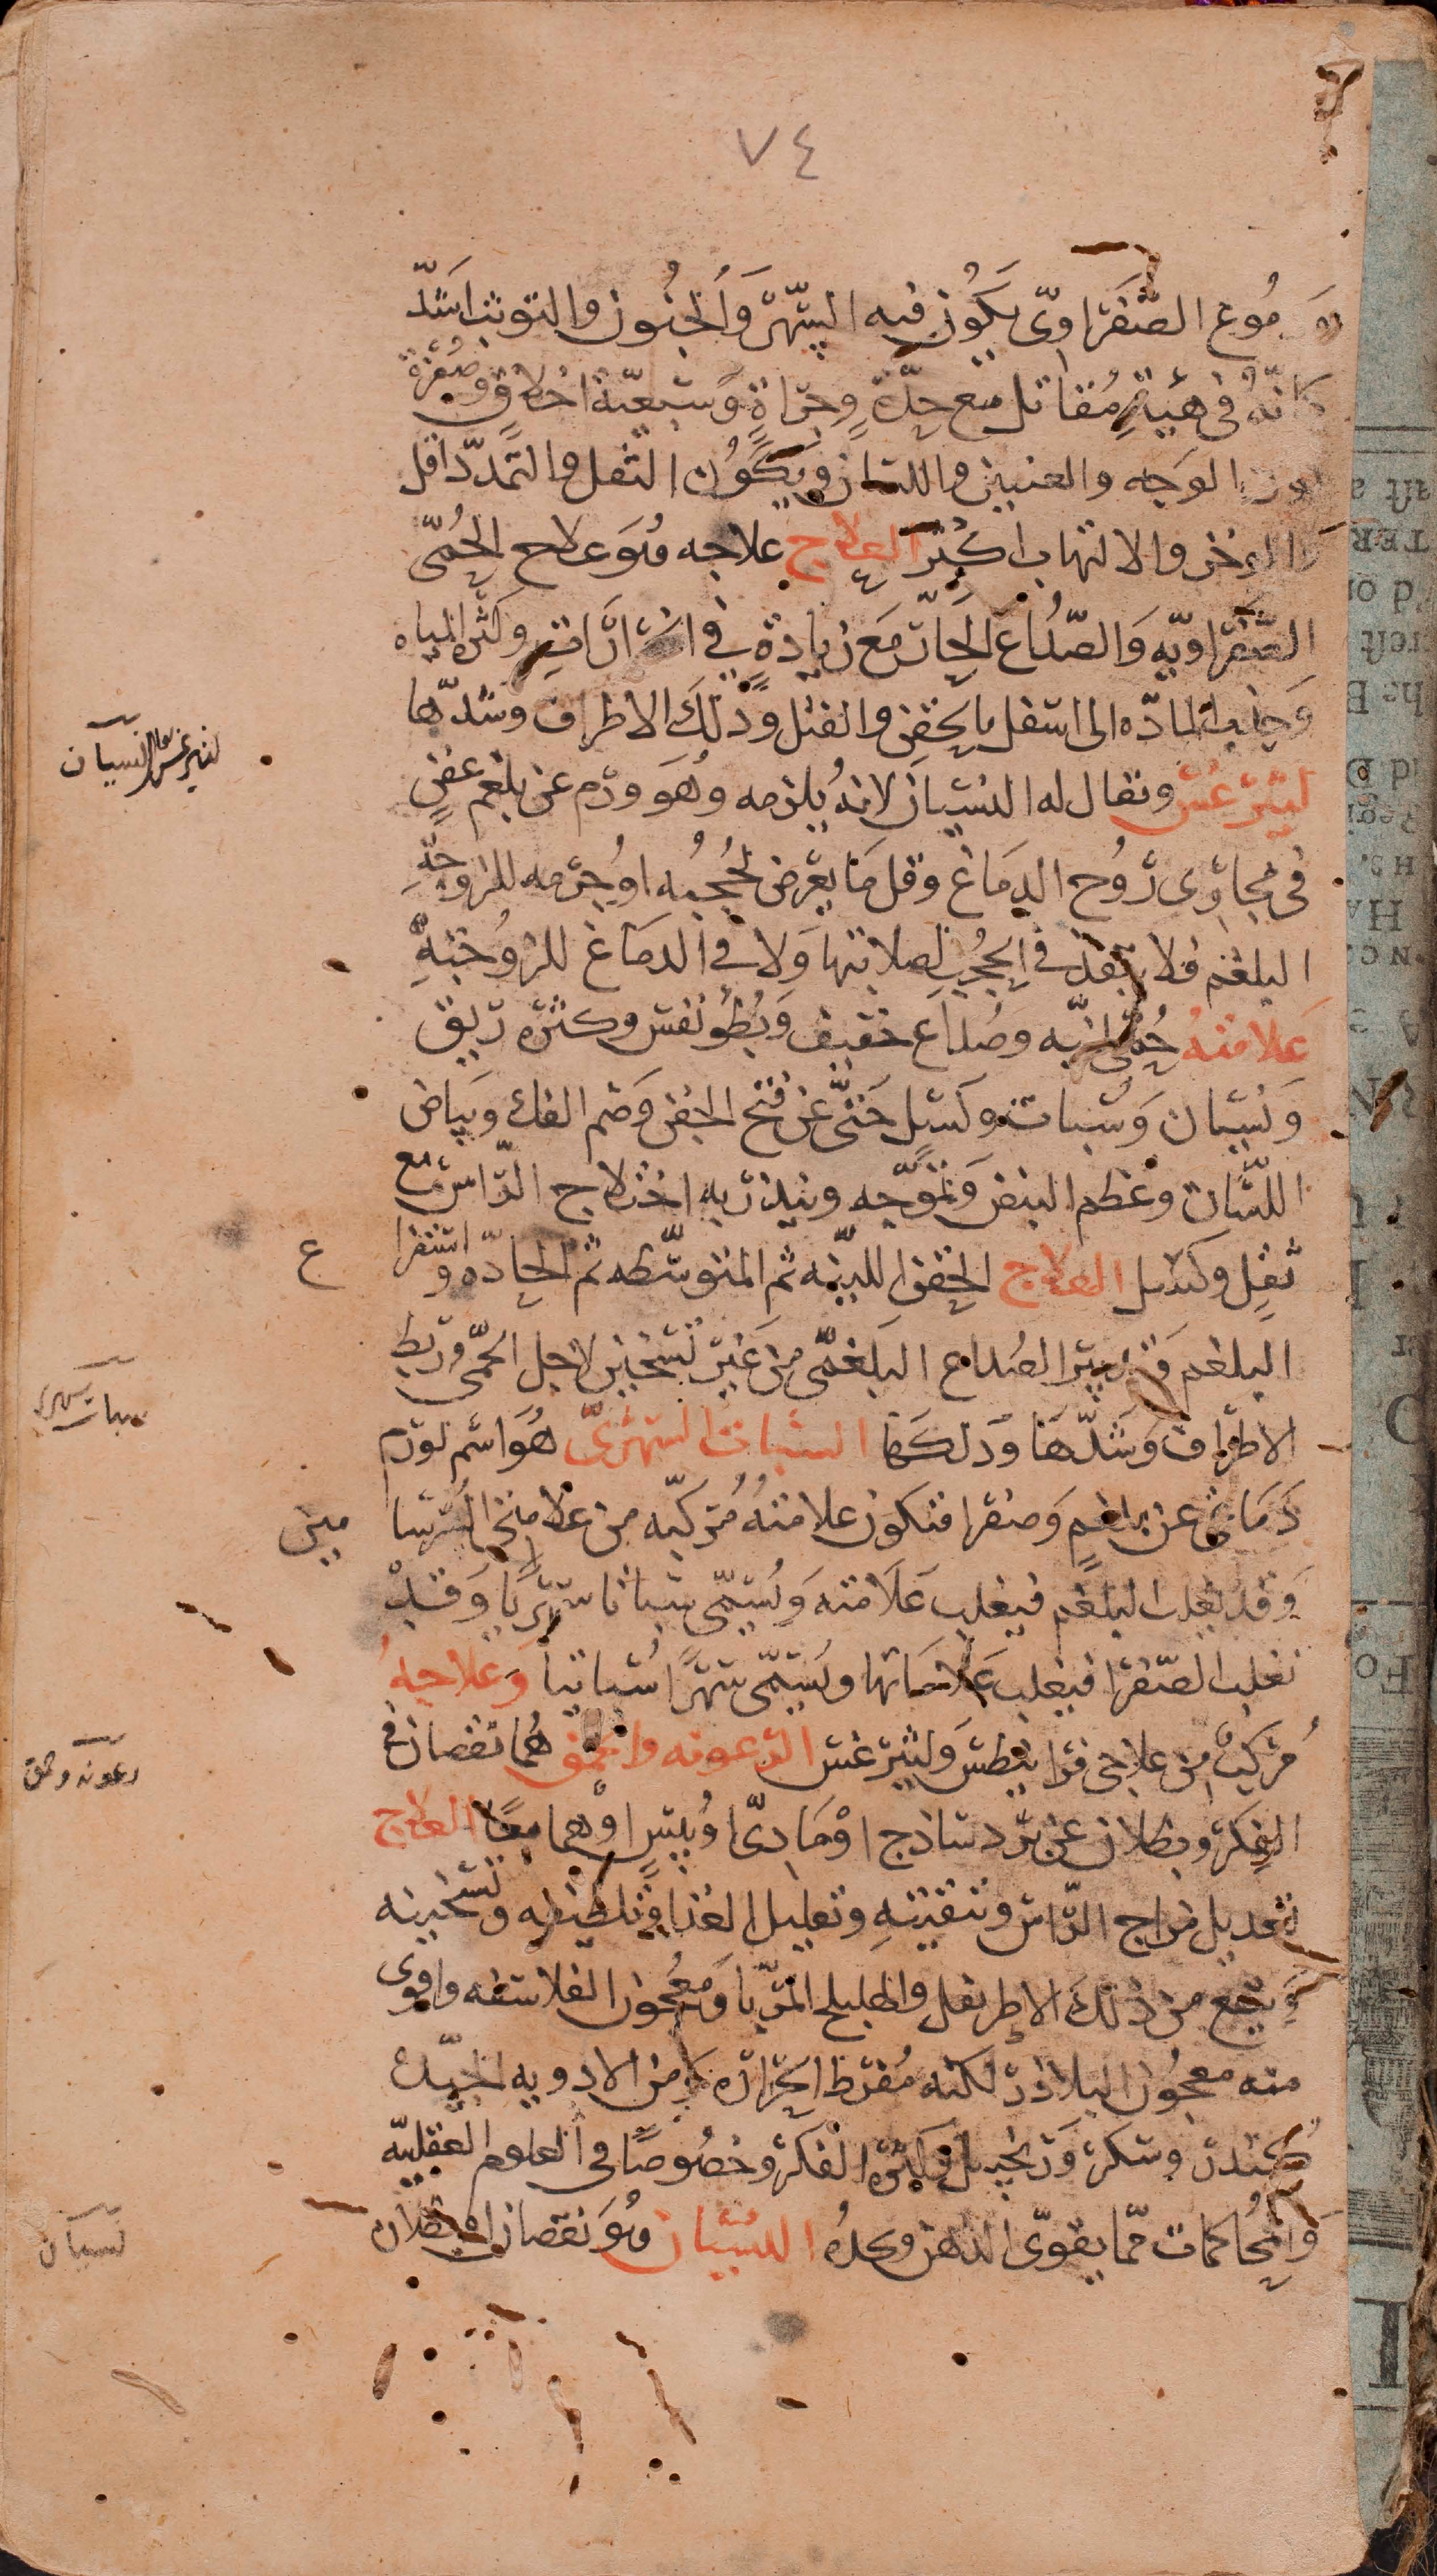 ٧٤
دموع الصَّفراوىّ يكُون فيه السّهرَ وَالجُنُون والتوثب اشَدّ
كانّهُ فى هَيئةِ مُقاتل مع حِدّةٍ وجراةٍ وَسَبعيّة اخلاقٍ وصُفرة
لون الوَجه والعينين واللسان ويكُون الثقل والتمدّد اقل
والوخز والالتهاب اكثر العلاج علاجه هُوَ علاج الحُمّى
الصّفراويّه وَالصّداع الحَارّ مَعَ زيادةٍ فى ... وكثرة المياه
وَجذب المادّه الى اسفل بالحقن والفتل وَدلك الاطراف وشدّها
ليثرغس ويقال له النسيان لانهُ يلزمه وَهُوَ ورم عن بلغم عفنٍ
فى مجارى رُوح الدمَاغ وقل مَا يعرض لحُجُبه اوجُرمه للزوجة
البلغم فلا ينفذ فى الحُجُبِ لصلابتها وَلا فى الدمَاغ للزُوجَتهِ
عَلامتهُ حُمّى ليّنه وصُداع خفيف وَبُطؤ نفس وكثرة ريق
وَنسيان وَسُبات وكسَل حَتّى عن فتح الجفن وَضم الفك وبياض
اللّسَان وعظم النبض وَتموّجه وينذر به اختلاج الرّاس مع
ثقلٍ وكسل العلاج الحقن الليّنه ثم المتوسّطه ثم الحادّه واستفرا غ
البلغم وَتدبير الصُداع البلغمّى من غَير تسخين لاجل الحمّى وربط
الاطراف وَشدّهَا وَدلكهَا السُبات السَهَرىّ هُوَ اسم لورم
دَمَاغى عن بلغمٍ وَصفرا فتكون علامتهُ مُركبّه من علامتى السّرسا مين
وَقد يغلب البلغم فيغلب عَلامته وَيُسَمّى سُباتا سَهَريًا وَقد
تغلب الصّفرا فيغلب عَلامَاتها ويُسَمّى سَهَرًا سُباتيا وَعلاجهُ
مُركبٌ من علاجى قرانيطس وَليثرغس الرّعونه والحمق هُمَا نقصان فى
الفكر وبطلان عن برد ساذج اوْ مَادىّ اويُبسٍ اوْهما معًا العلاج
تعديل مزاج الرّاس وتنقيتهِ وتعليل الغذا وَتلطيفه وتسخينه
وَينفع من ذلكَ الاطريفل والهليلج المربّا وَمعُجون الفلاسفه واقوى
منه معجُون البلاذر لكنه مُفرط الحَرارَه وَمن الادويه الجيّدة
كُندر وسكر وَزنجبيل وكثرة الفكر وخصُوصًا فى العلوم العقليّه
وَالمُحَاكمات ممّا يقوّى الذهن ويحدهُ النسْيَان وَهُوَ نقصَان اوبطلان
ليثرغس وهو النسيان
سبات سهرى
رعونه وحمق
نسيان